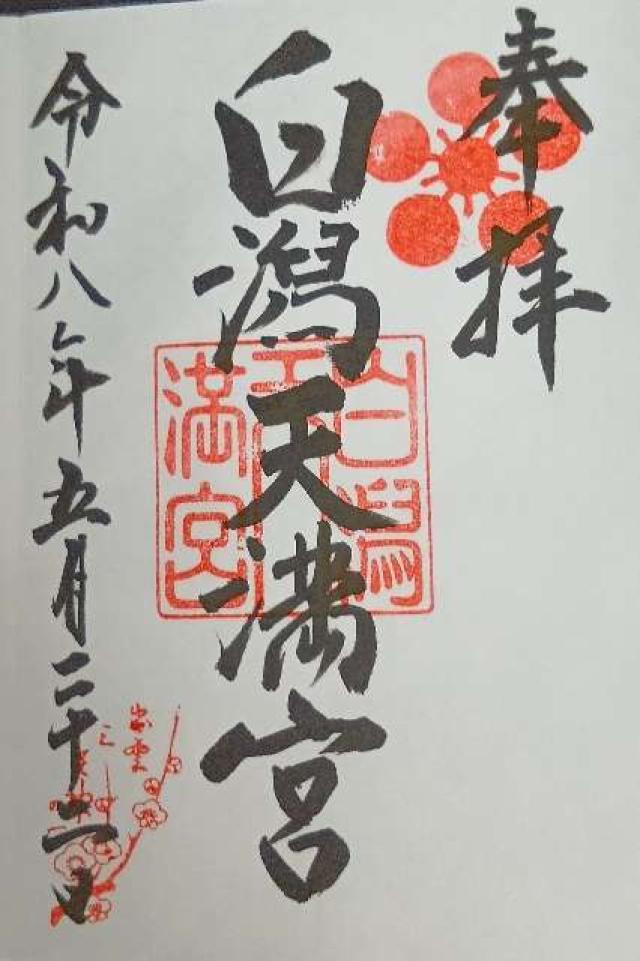 奉拝
白潟天満宮
白潟天満宮
令和八年五月二十二日
出雲